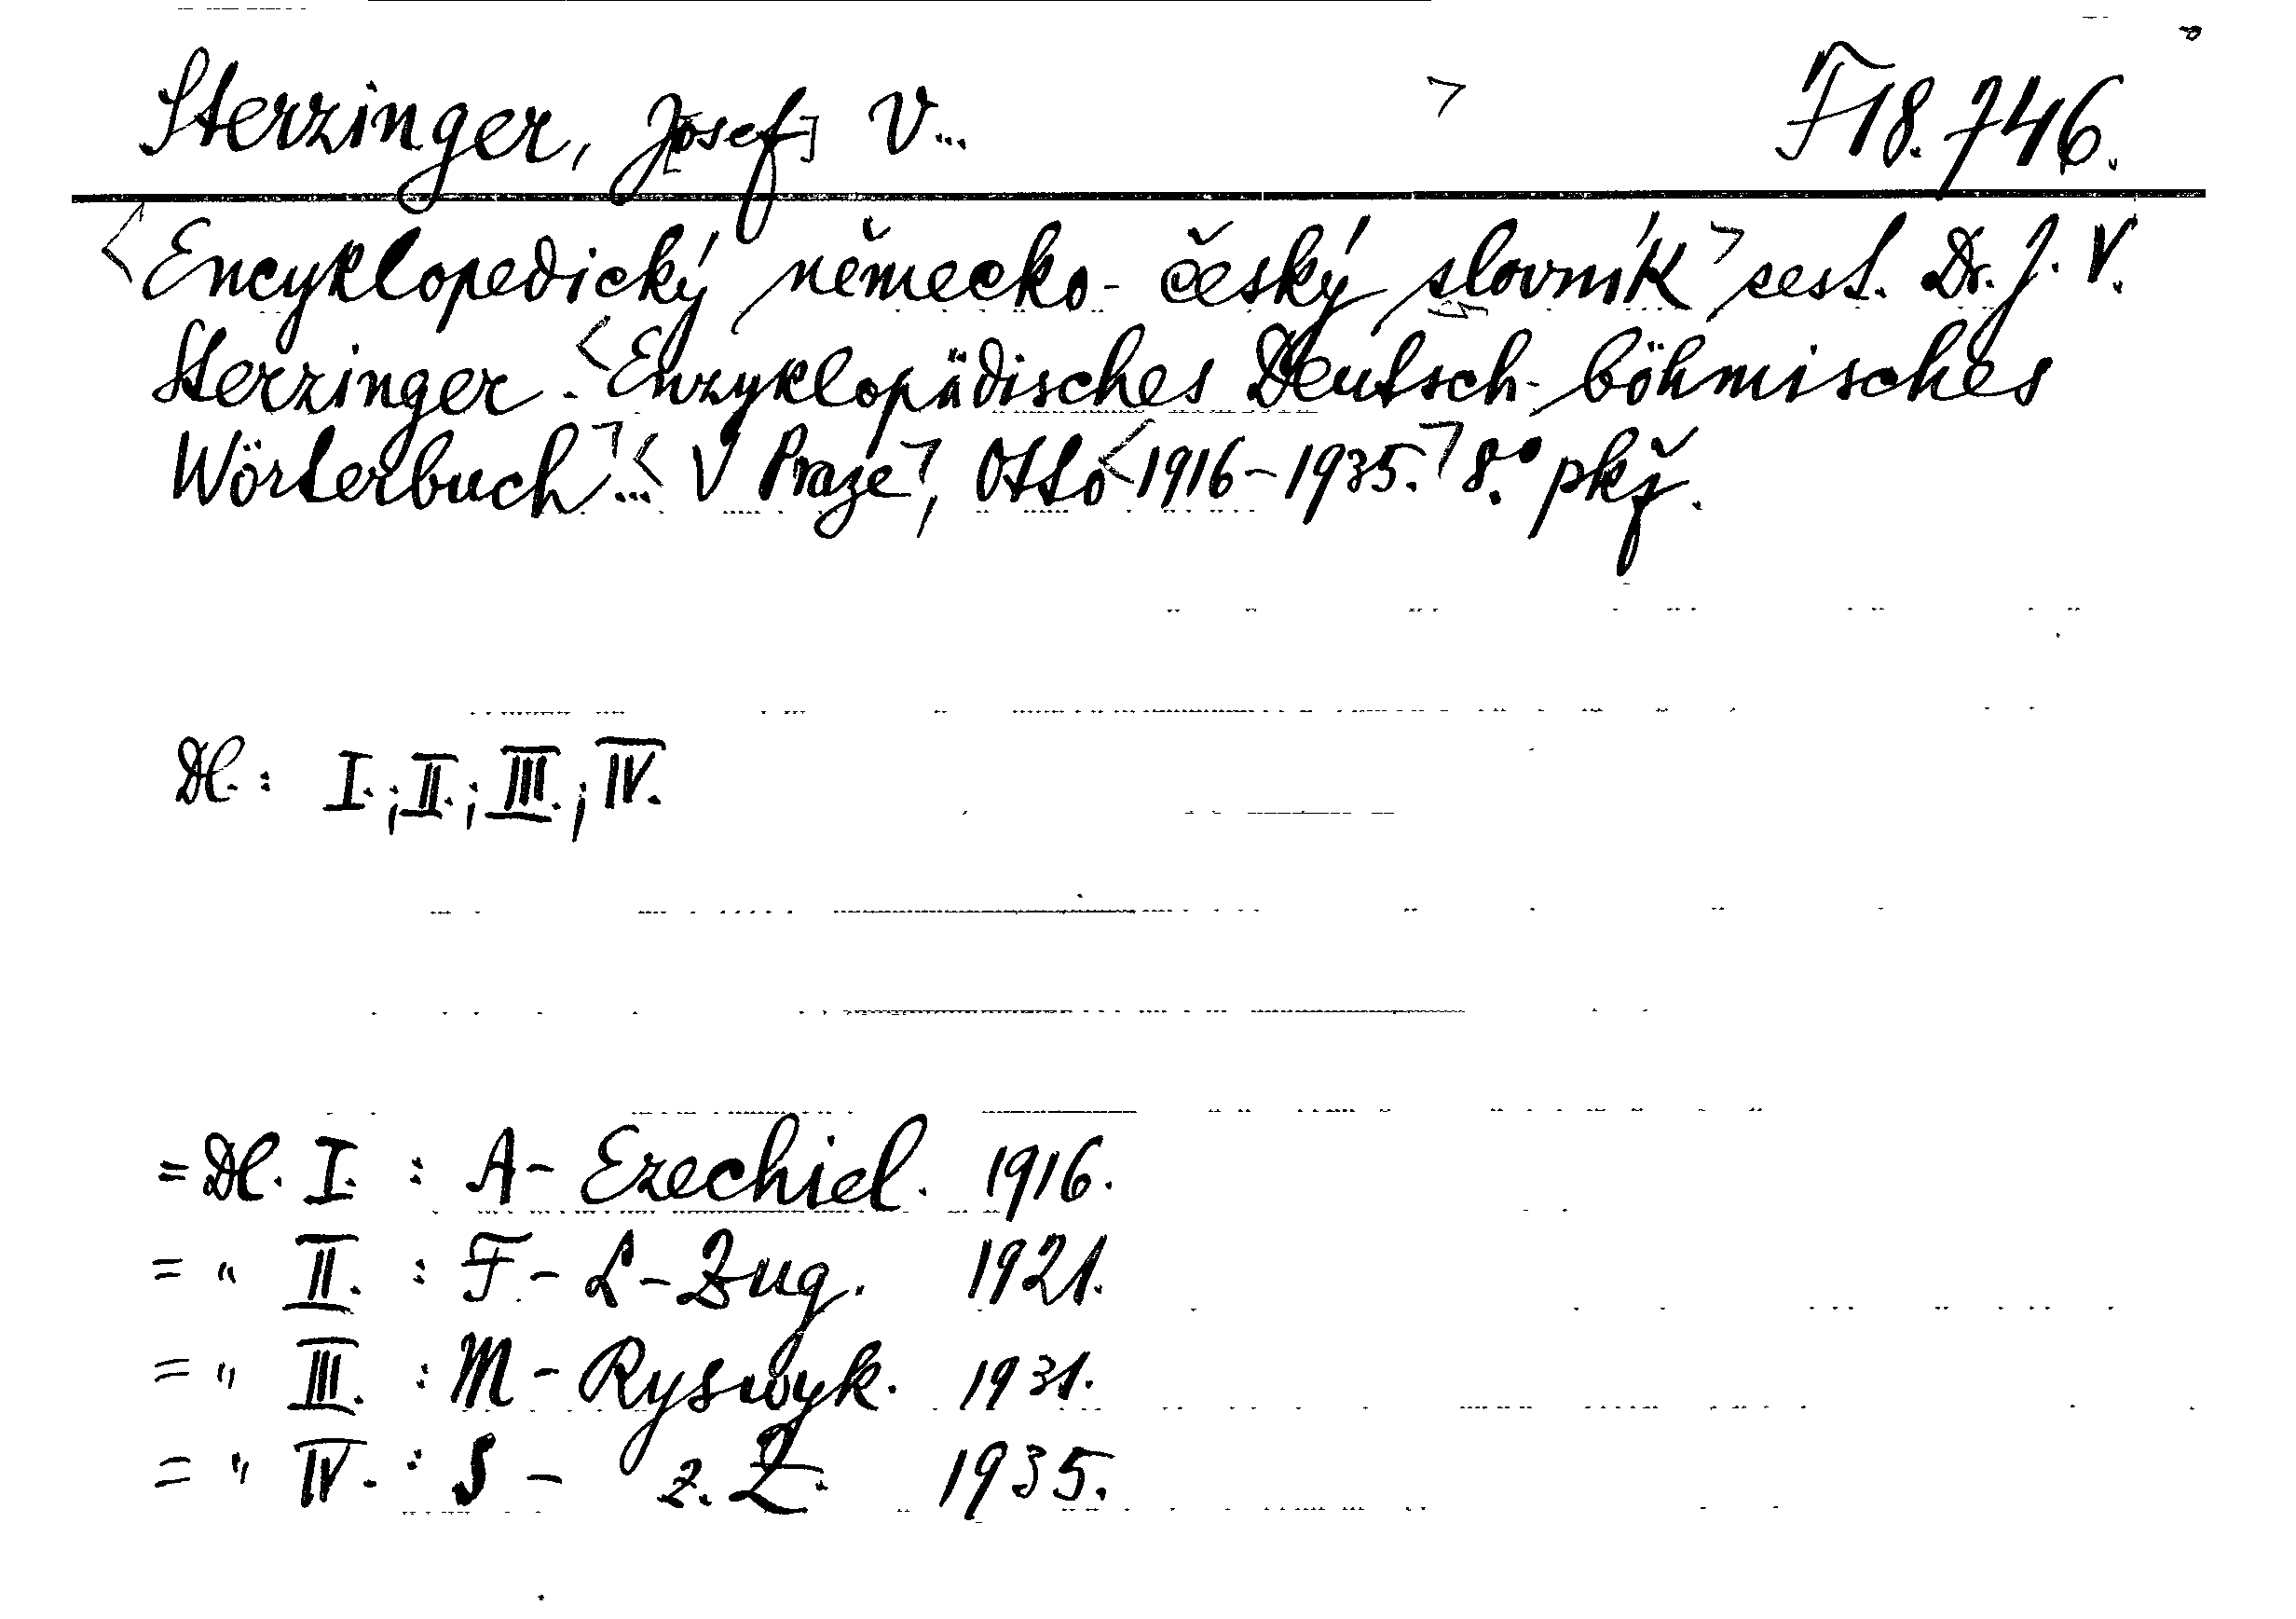 Sterzinger, J[osef] V... F 18.746.
<Encyklopedický německo-český slovník> sest. Dr. J. V.
Sterzinger. <Enzyklopädisches Deutsch-böhmisches
Wörterbuch>... <V Praze>, Otto <1916-1935.> 8.° pkž.
Dl.: I.; II.; III.; IV.
= Dl. I. : A - Ezechiel. 1916.
= " II. : F - L-Zug. 1921.
= " III. : M - Ryswyk. 1931.
= " IV. : S - z. Z. 1935.